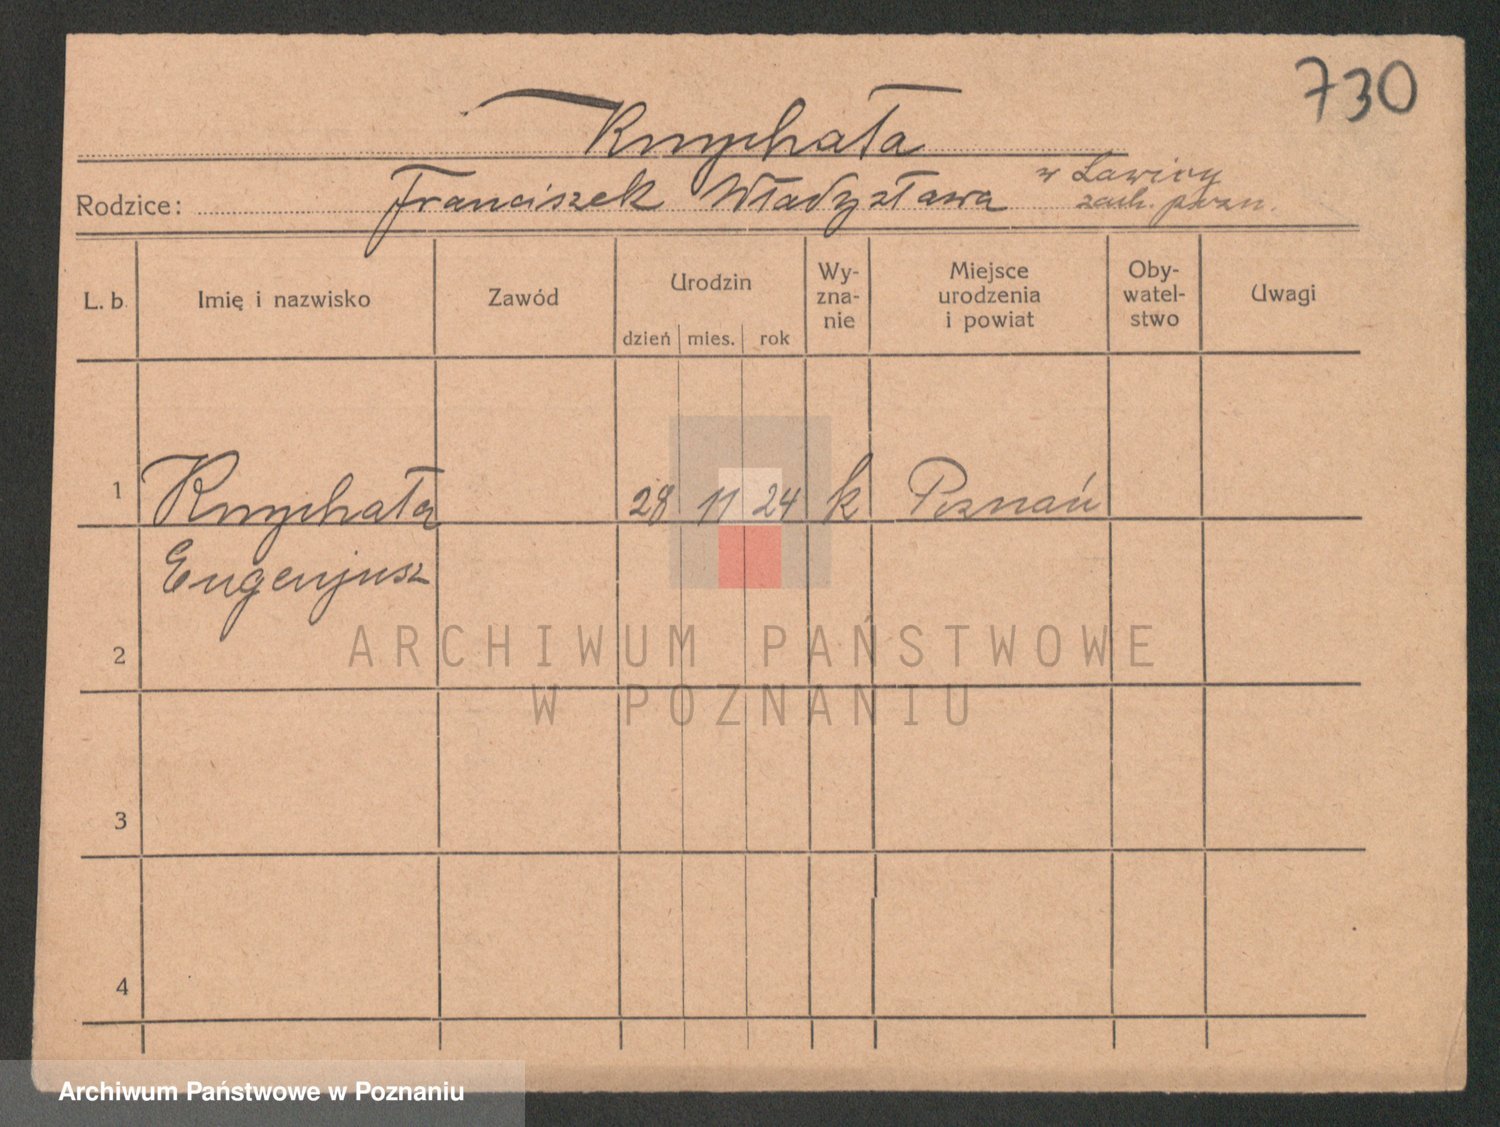 730
Knychała
Rodzice: Franciszek Władysława w Ławicy
zach. pozn.
L. b. Imię i nazwisko Zawód Urodzin dzień mies. rok Wy-zna-nie Miejsce urodzenia i powiat Oby-watel-stwo Uwagi
1 Knychała 28 11 24 k Poznań
Eugenjusz
2
3
4
ARCHIWUM PAŃSTWOWE
W POZNANIU
Archiwum Państwowe w Poznaniu